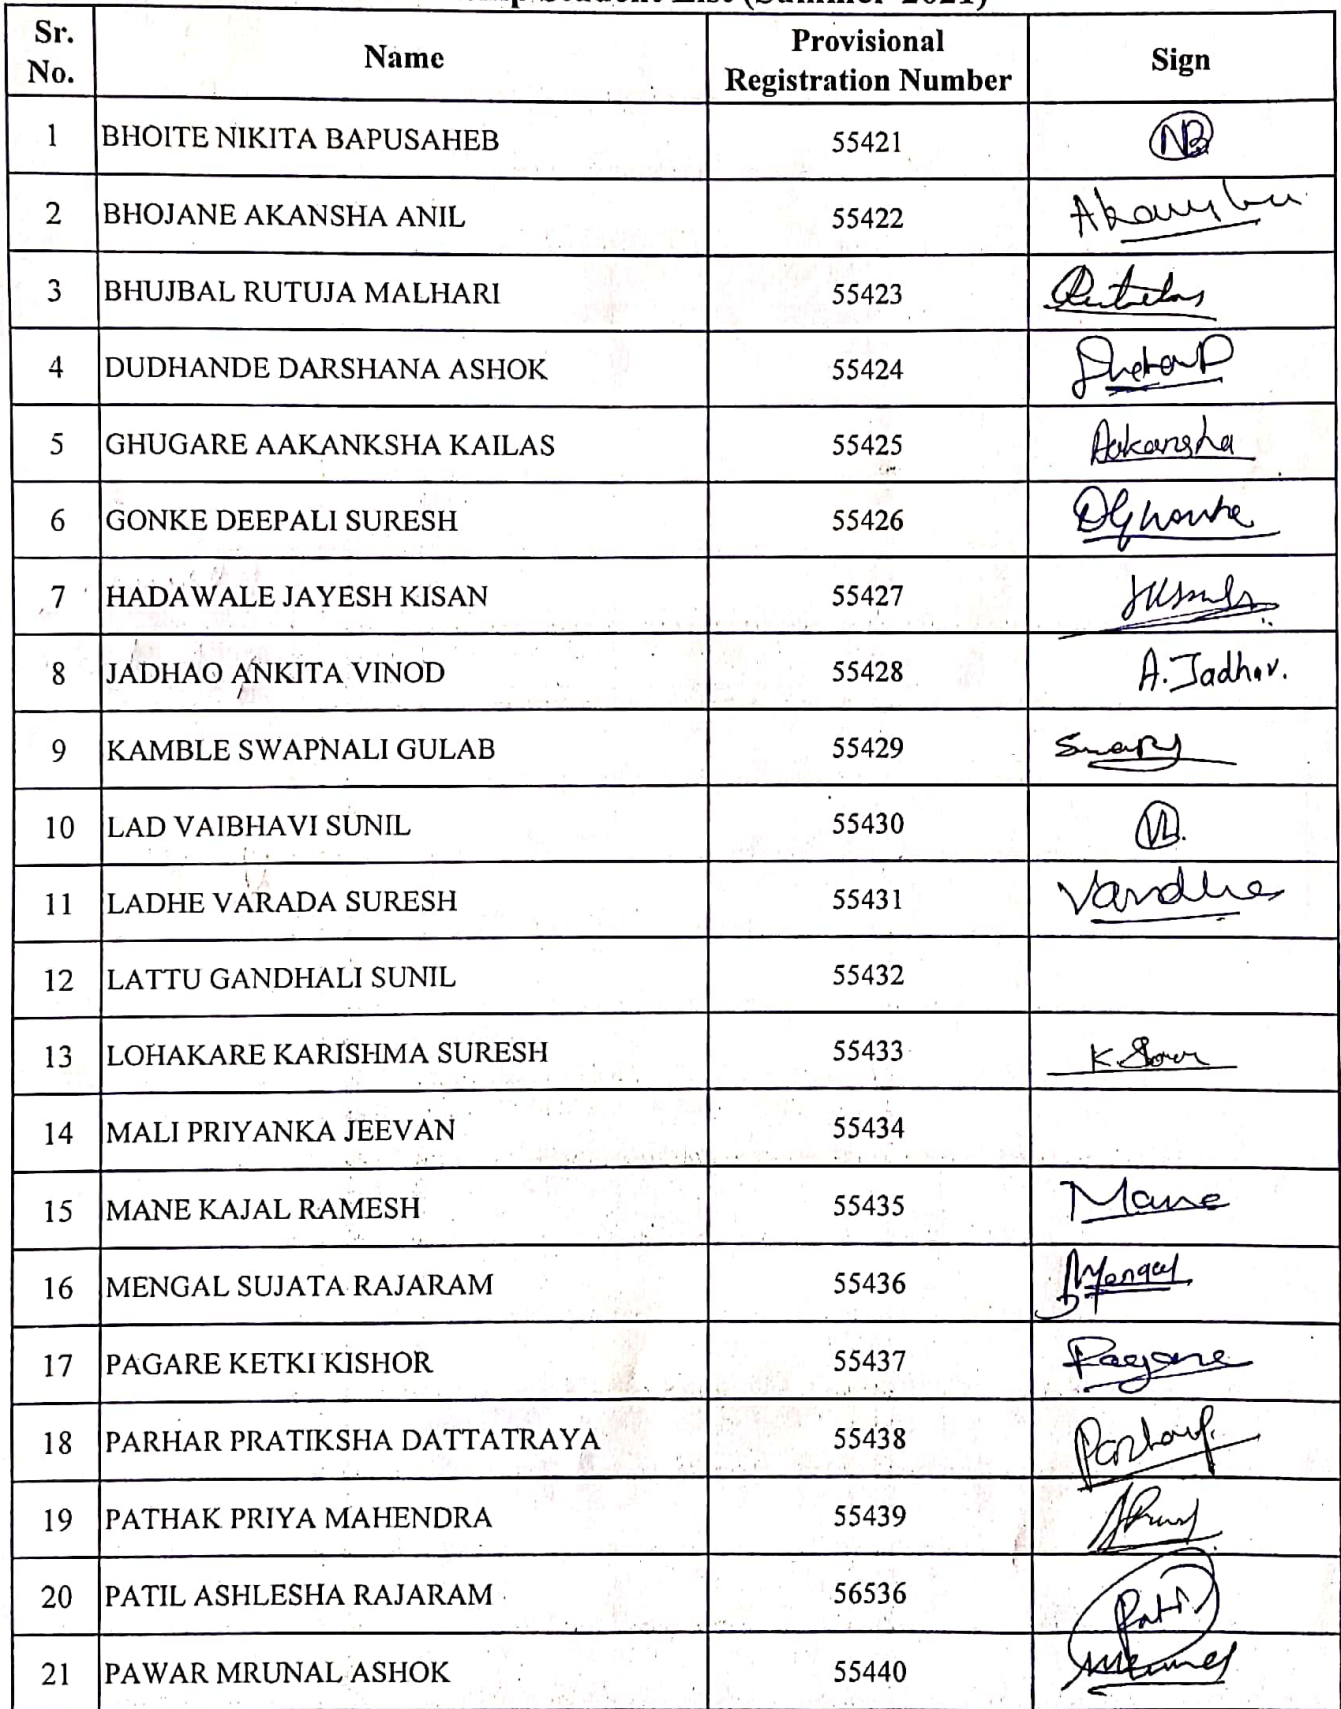 Student List (Summer-2021)
Sr. No. Name Provisional Registration Number Sign
1 BHOITE NIKITA BAPUSAHEB 55421 NB
2 BHOJANE AKANSHA ANIL 55422
3 BHUJBAL RUTUJA MALHARI 55423
4 DUDHANDE DARSHANA ASHOK 55424
5 GHUGARE AAKANKSHA KAILAS 55425 Aakansha
6 GONKE DEEPALI SURESH 55426
7 HADAWALE JAYESH KISAN 55427
8 JADHAO ANKITA VINOD 55428 A. Jadhav.
9 KAMBLE SWAPNALI GULAB 55429
10 LAD VAIBHAVI SUNIL 55430
11 LADHE VARADA SURESH 55431
12 LATTU GANDHALI SUNIL 55432
13 LOHAKARE KARISHMA SURESH 55433
14 MALI PRIYANKA JEEVAN 55434
15 MANE KAJAL RAMESH 55435 Mane
16 MENGAL SUJATA RAJARAM 55436
17 PAGARE KETKI KISHOR 55437 Pagare
18 PARHAR PRATIKSHA DATTATRAYA 55438
19 PATHAK PRIYA MAHENDRA 55439
20 PATIL ASHLESHA RAJARAM 56536
21 PAWAR MRUNAL ASHOK 55440